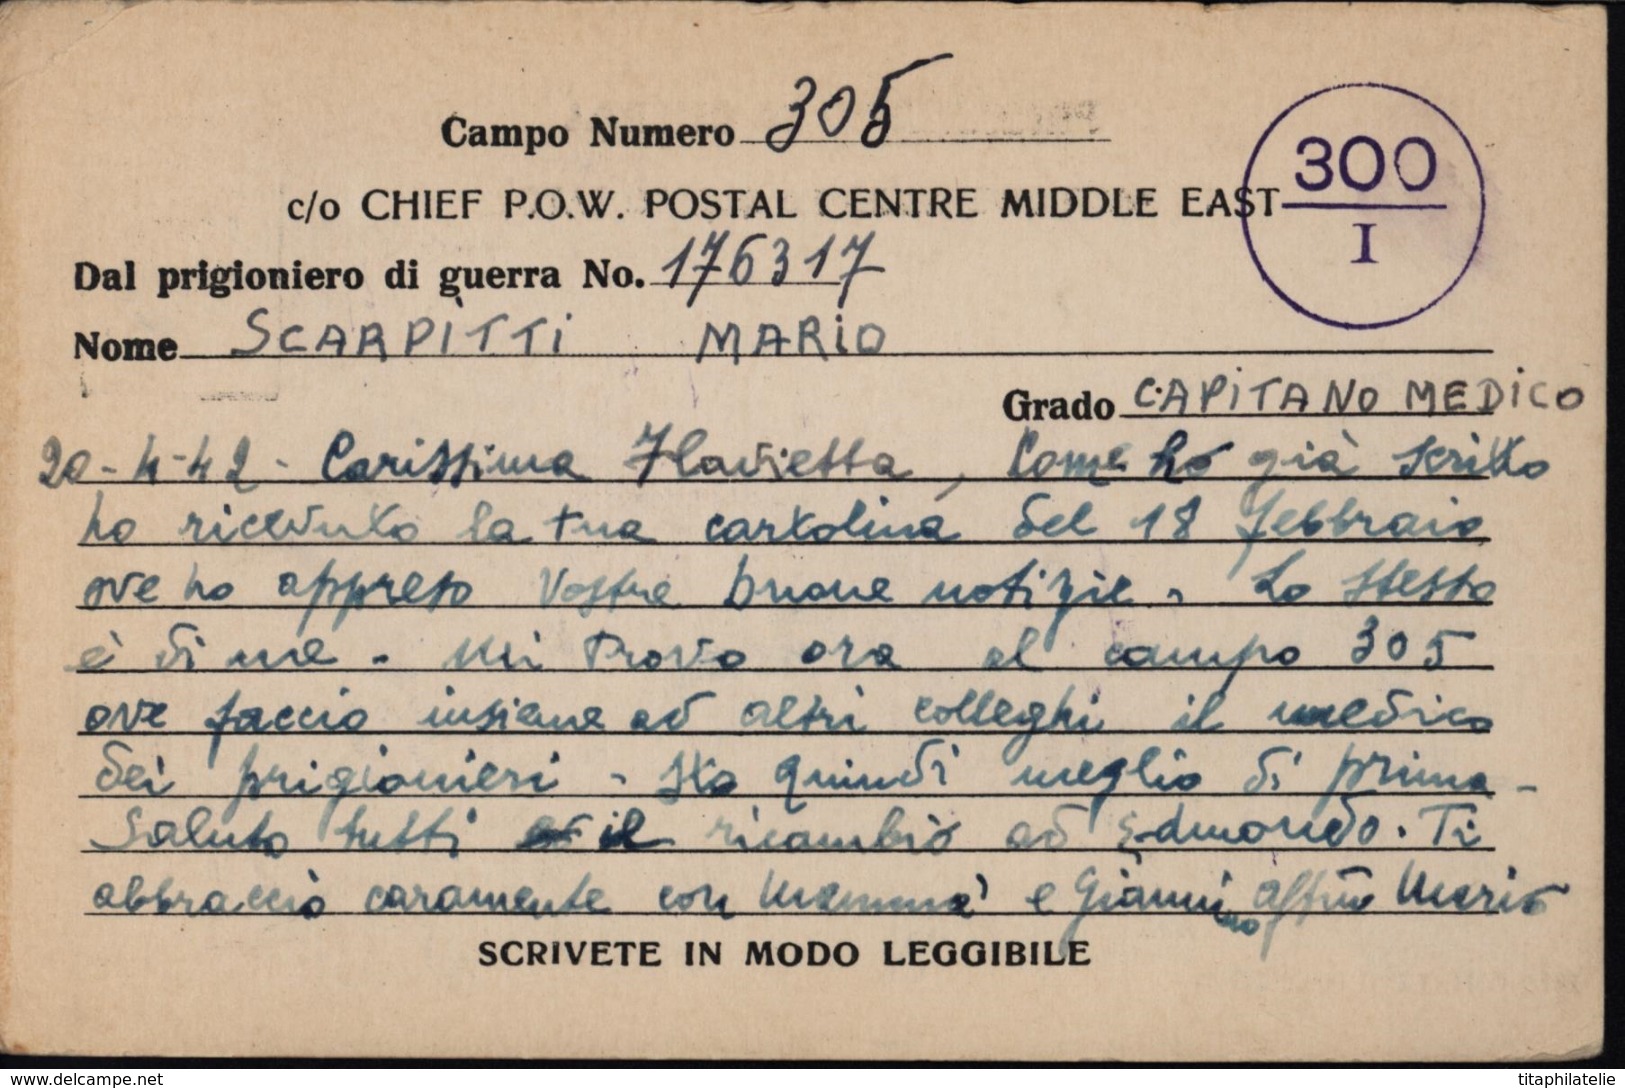 Campo Numero 305
300
I
c/o CHIEF P.O.W. POSTAL CENTRE MIDDLE EAST
Dal prigioniero di guerra No. 176317
Nome SCARPITTI MARIO
Grado CAPITANO MEDICO
20-4-42 - Carissima Flavietta, Come ho già scritto
ho ricevuto la tua cartolina del 18 febbraio
ove ho appreso vostre buone notizie - Lo stesso
è di me - Mi trovo ora al campo 305
ove faccio insieme ad altri colleghi il medico
dei prigionieri - Sto quindi meglio di prima -
Saluto tutti il ricambio ad Edmondo. Ti
abbraccio caramente con Mammà e Giannino Aff/mo Mario
SCRIVETE IN MODO LEGGIBILE
www.delcampe.net
titaphilatelie